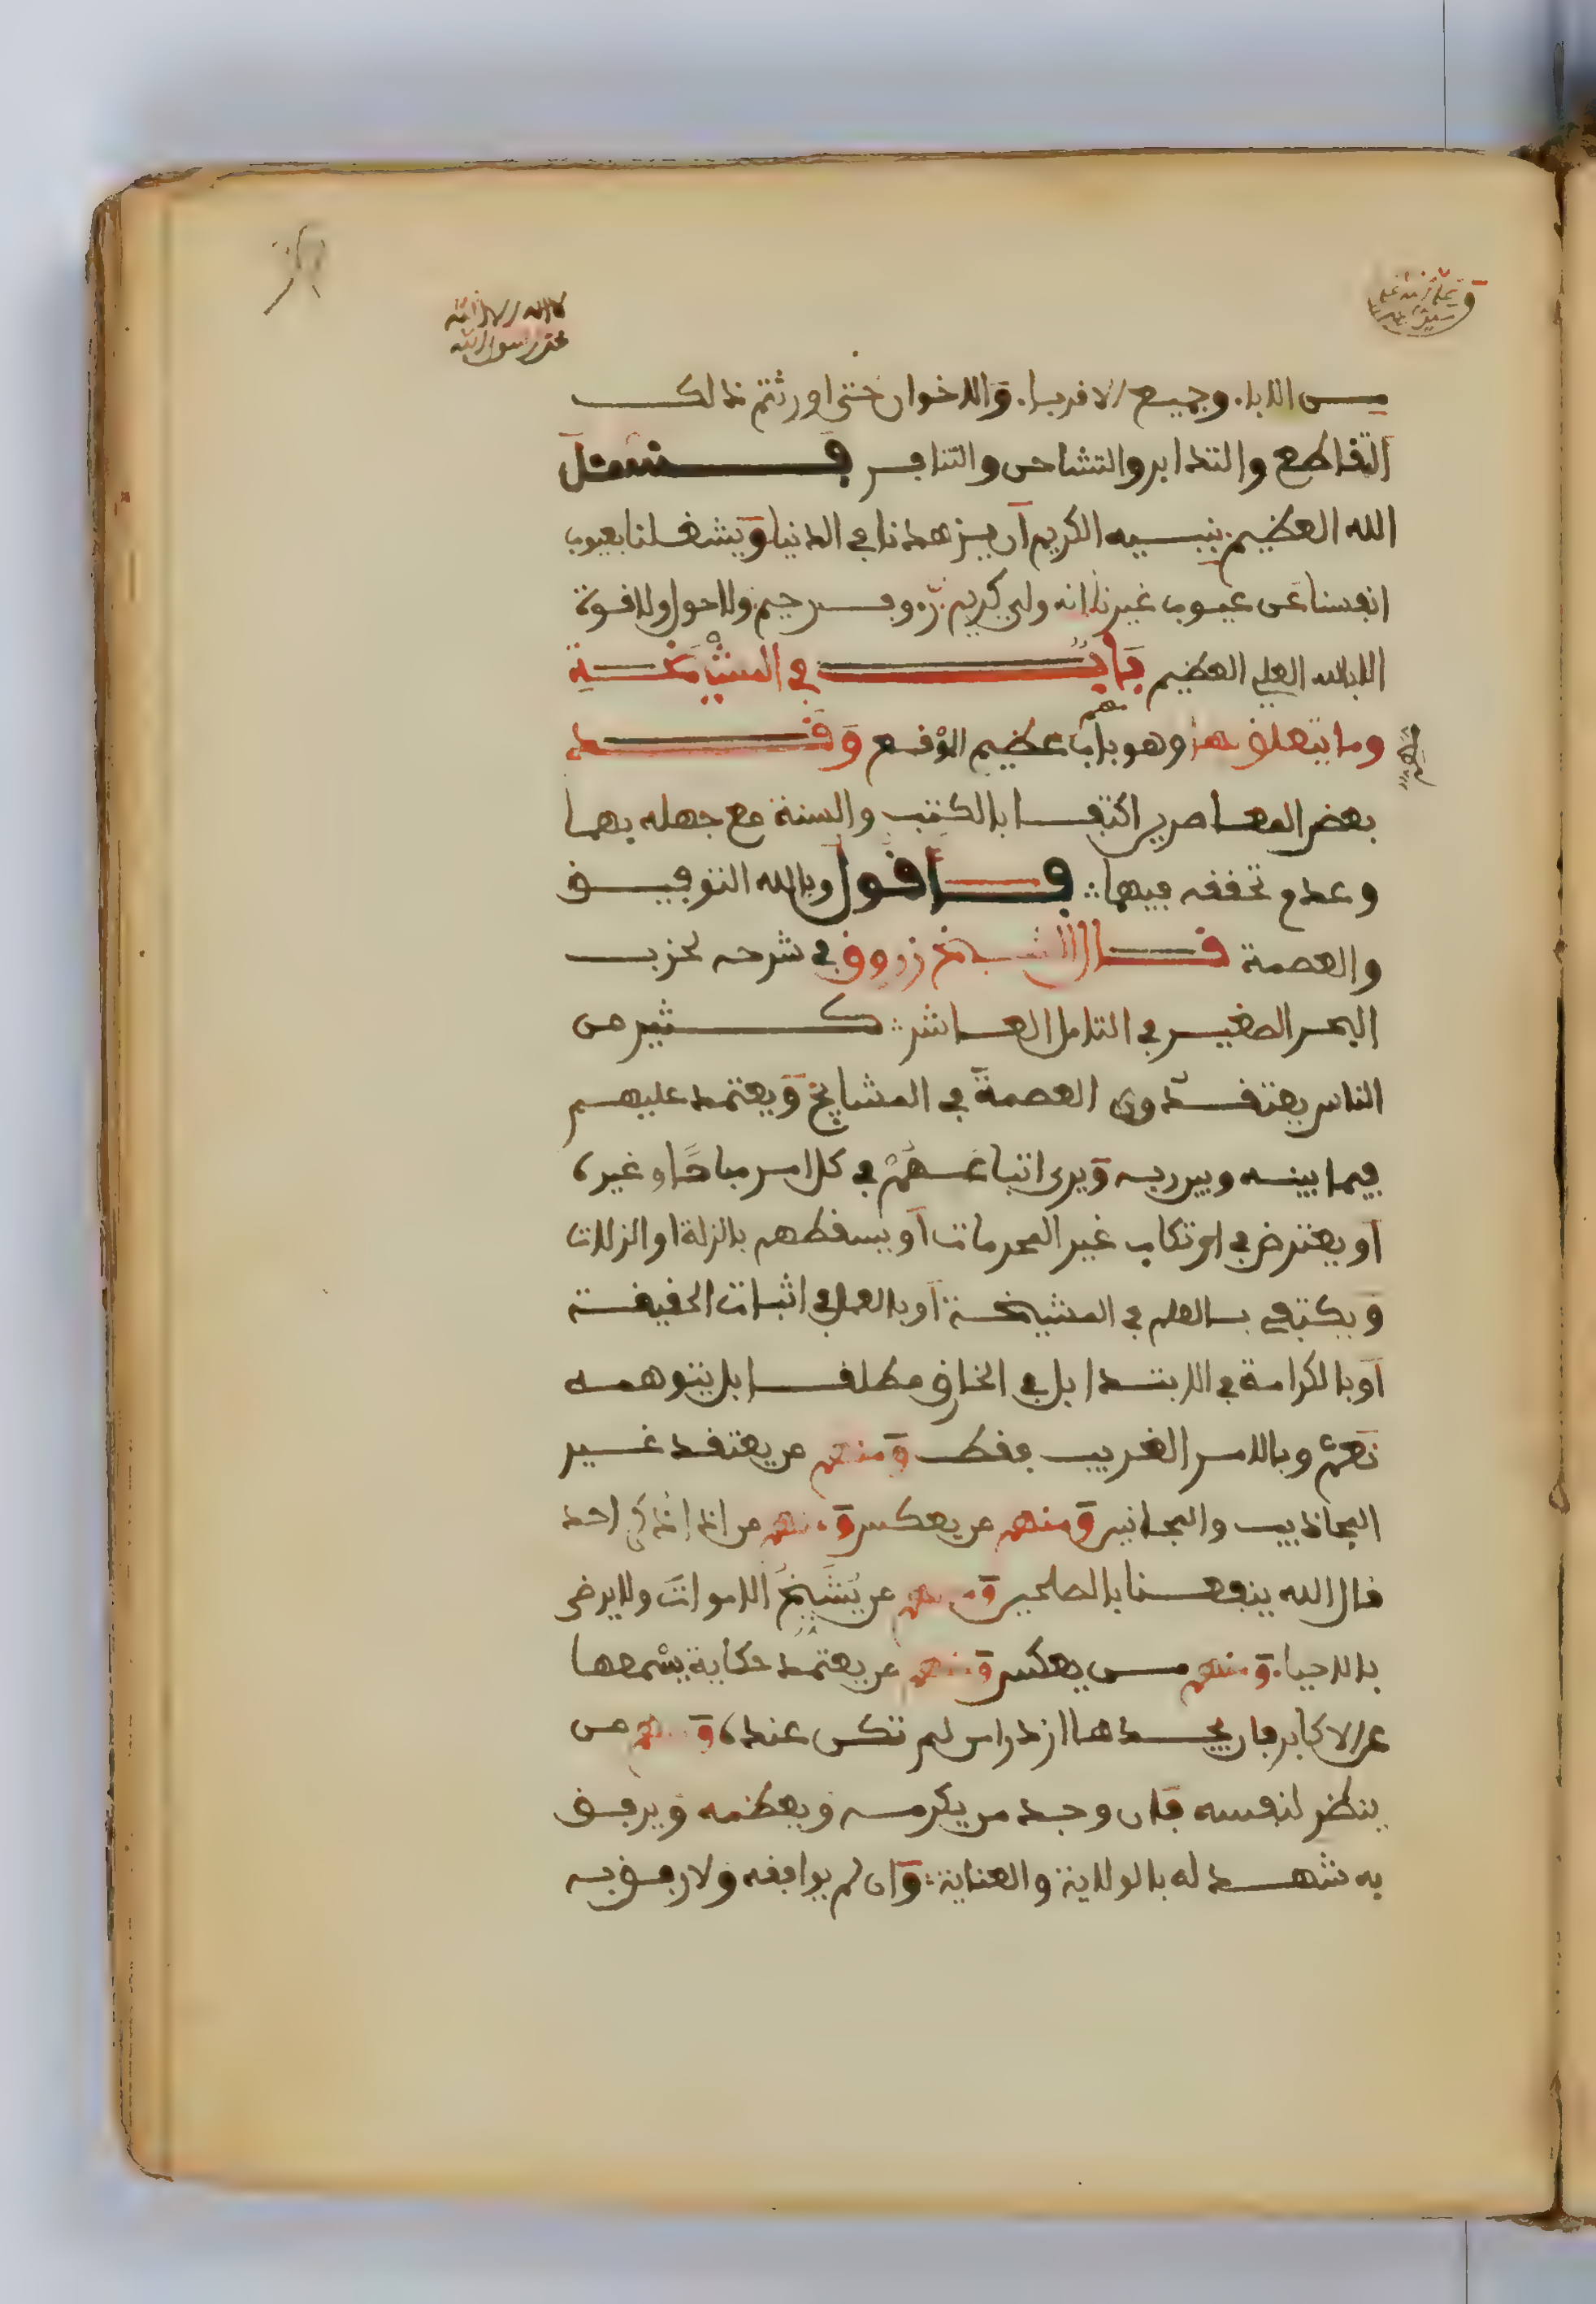 لا اله الا الله
محمد رسول الله
بين الابا. وجميع الافربا. والاخوان حتى اورثتم ذالك
التقاطع والتدابر والتشاحن والتنافر فنسئل
الله العظيم بنبيه الكريم أن يزهدنا في الدنيا ويشغلنا بعيوب
انفسنا عن عيوب غيرنا انه ولي كريم بر. وف رحيم ولا حول ولا قوة
الا بالله العلي العظيم باب في المشيخة
وما يتعلق بها وهو باب مهم عظيم الوقع وقد
بعض المعاصرين اكتفا بالكتب والسنة مع جهله بهما
وعدم تحققه فيهما ؛ فاقول وبالله التوفيق
والعصمة قال الشيخ زروق في شرحه لحزب
البحر الصغير في التامل العاشر ؛ كثير من
الناس يعتقدون العصمة في المشايخ ويعتمد عليهم
فيما بينه وبين ربه ويرى اتباعهم في كل امر مباحا او غيره
أو يعترض في ارتكاب غير المحرمات أو يسقطهم بالزلة او الزلات
ويكتفي بالعلم في المشيخة أو بالعمل في اثبات الحقيقة
أو بالكرامة في الابتدا بل في الخارق مطلقا بل يتوهمه
نعم وبالامر الغريب فقط ومنهم من يعتقد غير
المجاذيب والمجانين ومنهم من يعكس ومنهم من اذا اذكر احد
قال الله ينفعنا بالصلحين ومنهم من يشيخ الاموات ولا يرضى
بالاحيا. ومنهم من يعكس ومنهم من يعتمد حكاية يسمعها
عن الاكابر فان يجدها ازدرا من لم تكن عنده ومنهم من
ينظر لنفسه فان وجد من يكرمه ويعظمه ويرفق
به شهد له بالولاية والعناية ؛ وان لم يوافقه ولا رفق به